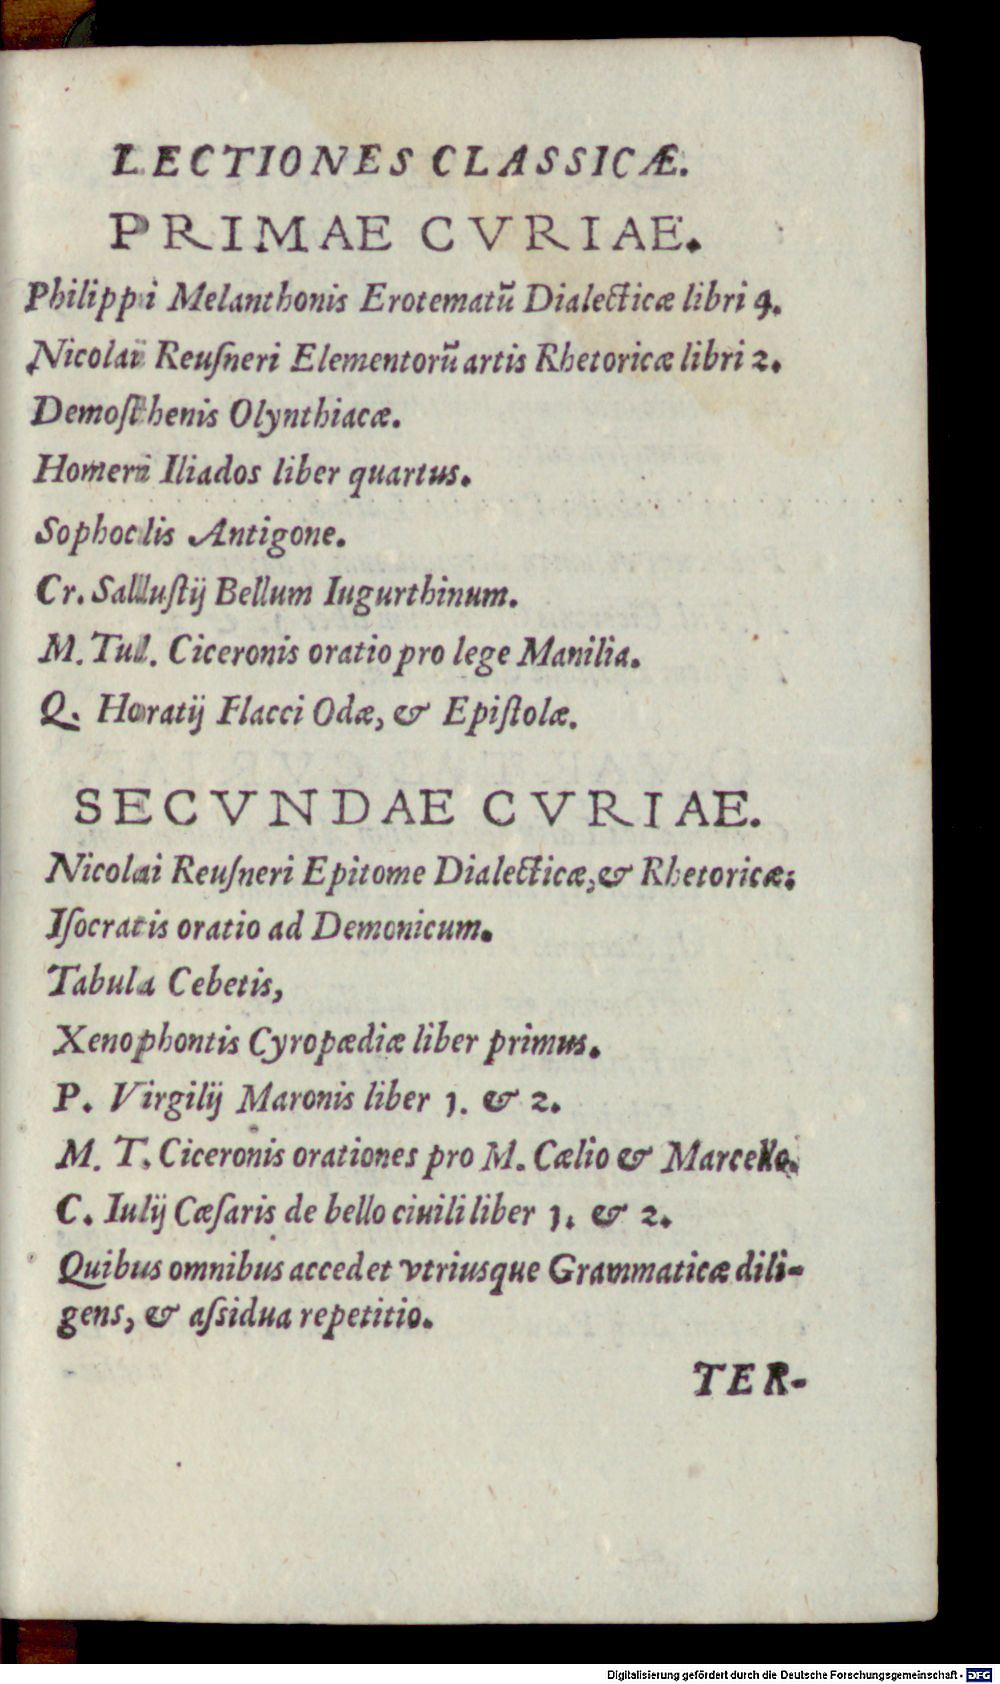 LECTIONES CLASSICÆ.
PRIMAE CVRIAE.
Philippi Melanthonis Erotematū Dialecticæ libri 9.
Nicolai Reuſneri Elementorū artis Rhetoricæ libri 2.
Demoſthenis Olynthiacæ.
Homeri Iliados liber quartus.
Sophoclis Antigone.
Cr. Salluſtij Bellum Iugurthinum.
M. Tul. Ciceronis oratio pro lege Manilia.
Q. Horatij Flacci Odæ, & Epiſtolæ.
SECVNDAE CVRIAE.
Nicolai Reuſneri Epitome Dialecticæ, & Rhetoricæ:
Iſocratis oratio ad Demonicum.
Tabula Cebetis,
Xenophontis Cyropædiæ liber primus.
P. Virgilij Maronis liber 1. & 2.
M. T. Ciceronis orationes pro M. Cælio & Marcello.
C. Iulij Cæſaris de bello ciuili liber 1. & 2.
Quibus omnibus accedet vtriusque Grammaticæ dili-
gens, & aſsidua repetitio.
TER-
Digitalisierung gefördert durch die Deutsche Forschungsgemeinschaft - DFG